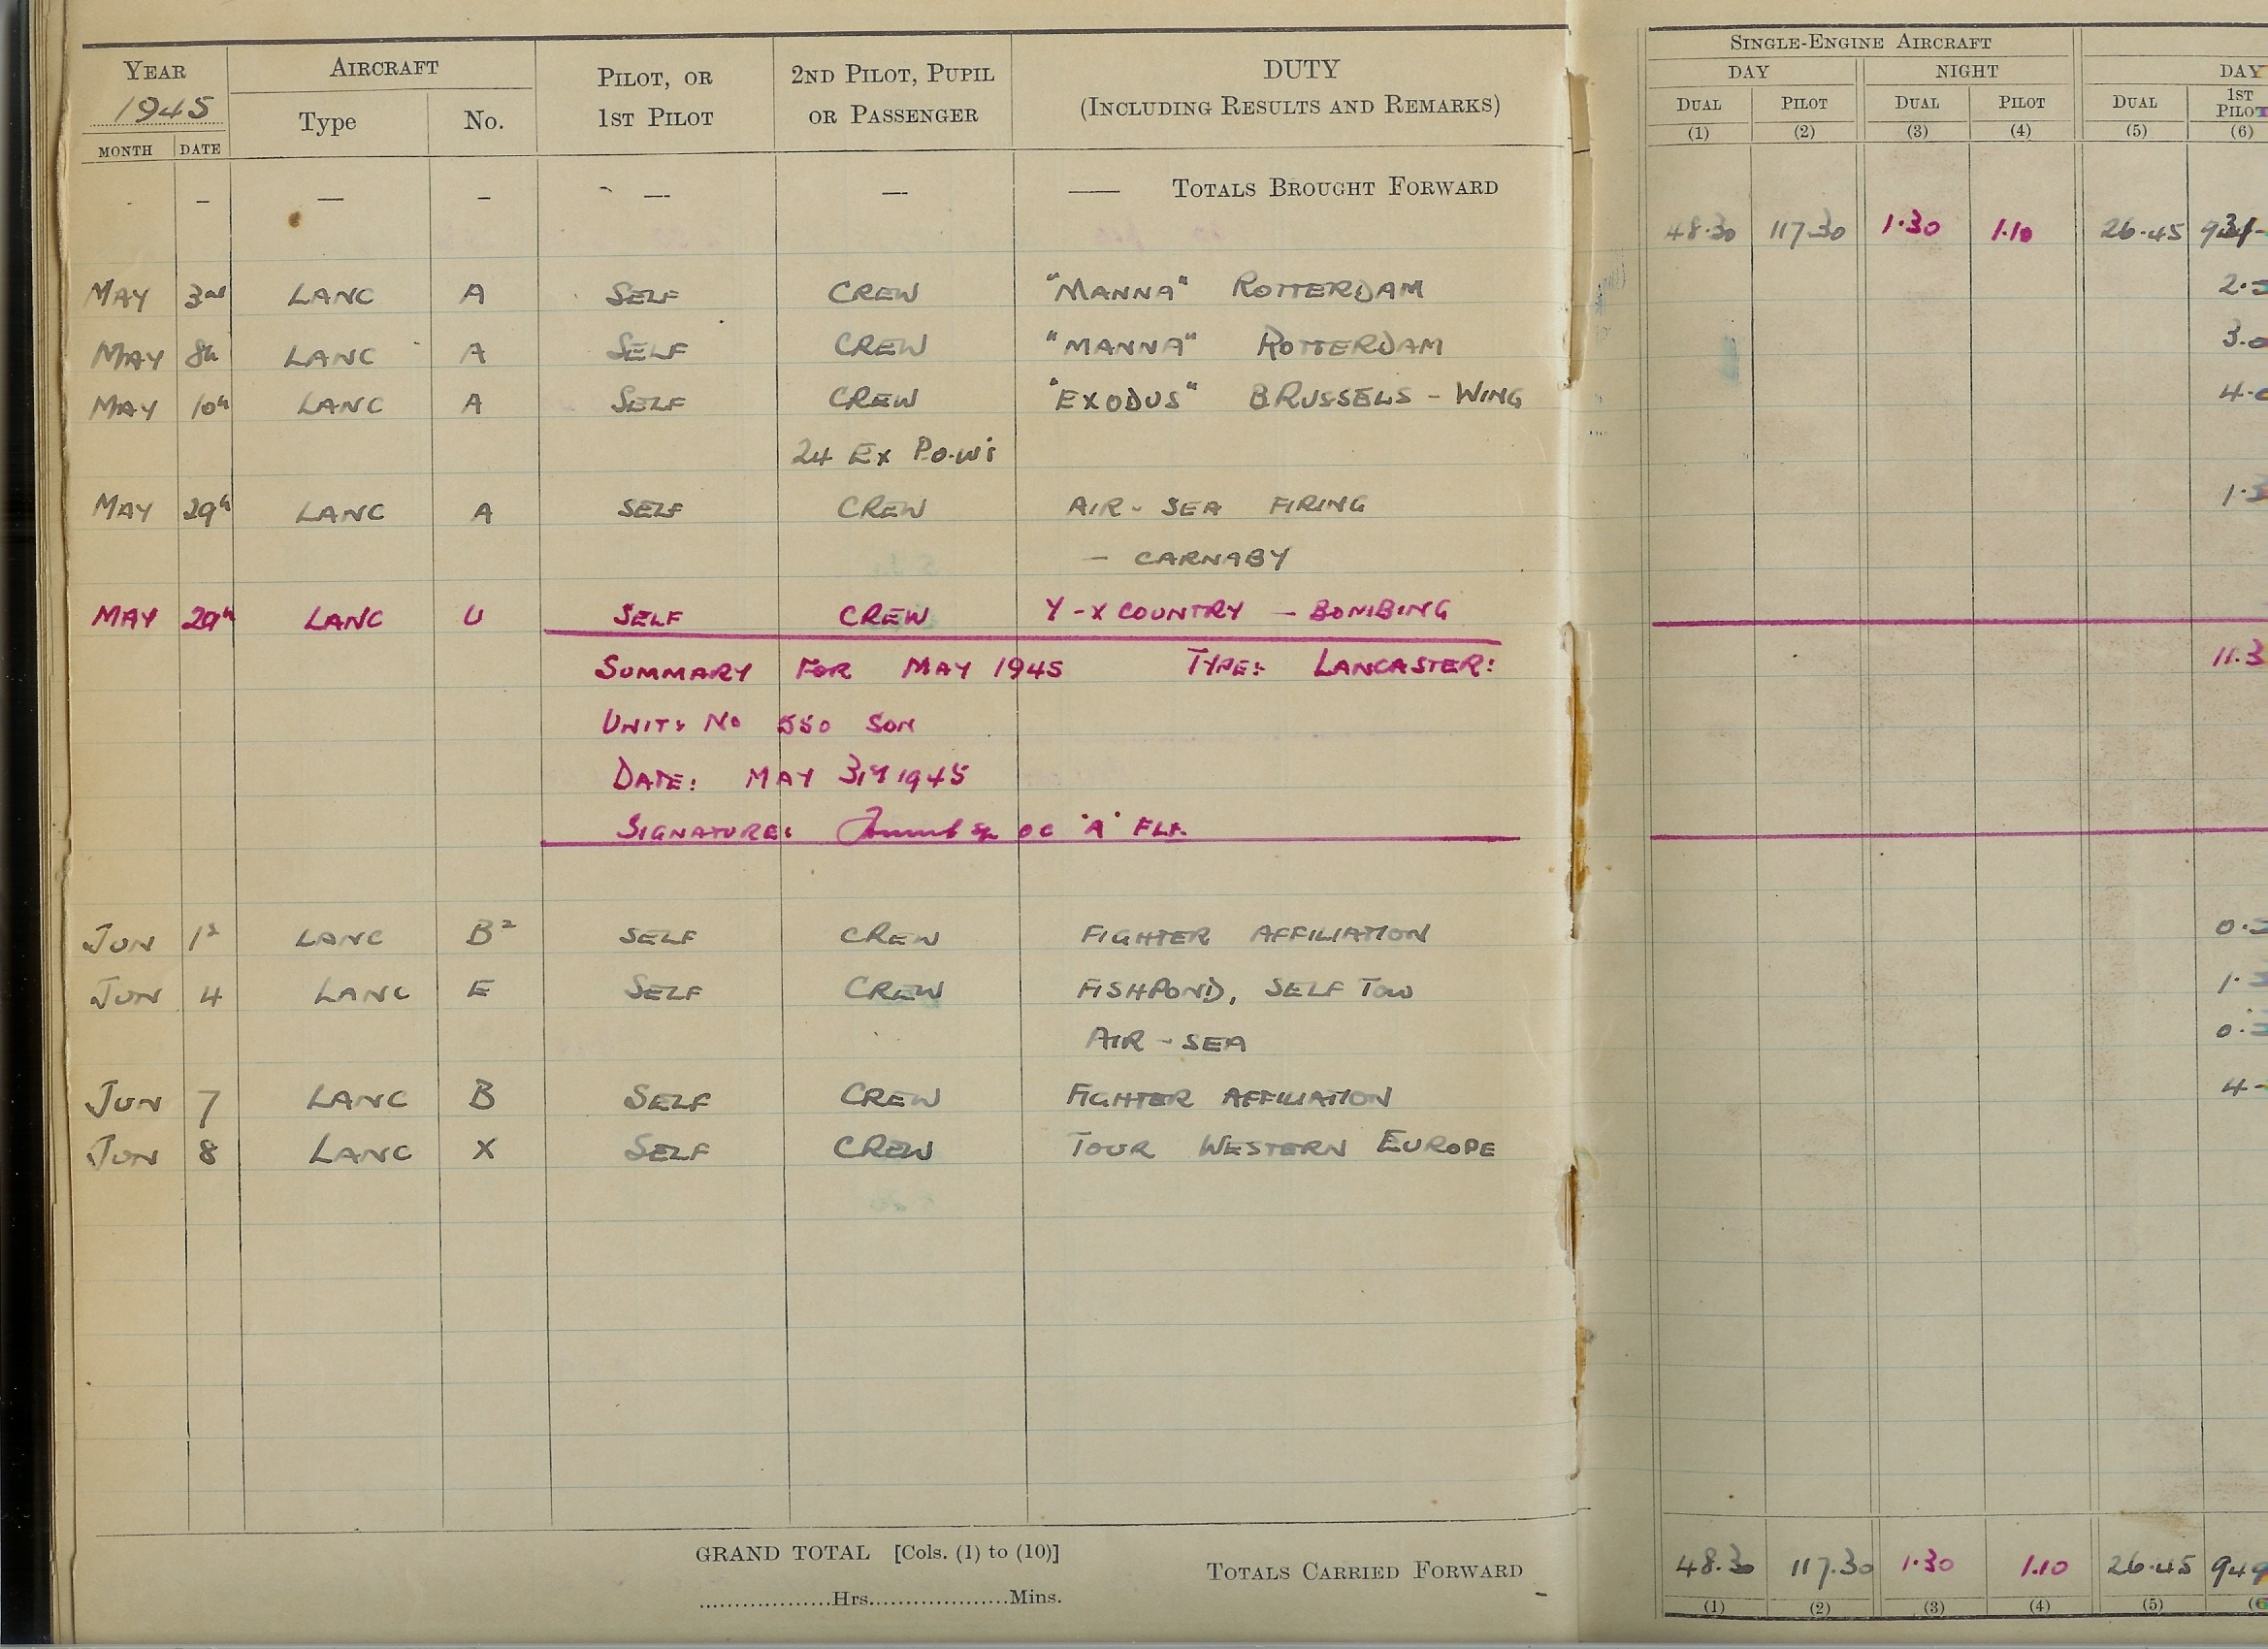 YEAR AIRCRAFT PILOT, OR 2ND PILOT, PUPIL DUTY SINGLE-ENGINE AIRCRAFT
1945 Type No. 1ST PILOT OR PASSENGER (INCLUDING RESULTS AND REMARKS) DAY NIGHT DAY
MONTH DATE DUAL PILOT DUAL PILOT DUAL 1ST PILOT
(1) (2) (3) (4) (5) (6)
- — - — — —— TOTALS BROUGHT FORWARD
48.30 117.30 1.30 1.10 26.45
MAY 3rd LANC A SELF CREW "MANNA" ROTTERDAM
MAY 8th LANC A SELF CREW "MANNA" ROTTERDAM
MAY 10th LANC A SELF CREW "EXODUS" BRUSSELS - WING
24 EX P.O.W's
MAY 29th LANC A SELF CREW AIR - SEA FIRING
- CARNABY
MAY 29th LANC U SELF CREW Y-X COUNTRY - BOMBING
SUMMARY FOR MAY 1945 TYPE: LANCASTER: 11.3
UNIT: No 550 SQN
DATE: MAY 31st 1945
SIGNATURE: OC 'A' FLT.
JUN 1st LANC B2 SELF CREW FIGHTER AFFILIATION
JUN 4 LANC E SELF CREW FISHPOND, SELF TOW
AIR - SEA
JUN 7 LANC B SELF CREW FIGHTER AFFILIATION
JUN 8 LANC X SELF CREW TOUR WESTERN EUROPE
GRAND TOTAL [Cols. (1) to (10)]
TOTALS CARRIED FORWARD 48.30 117.30 1.30 1.10 26.45 949
..................Hrs...................Mins.
(1) (2) (3) (4) (5) (6